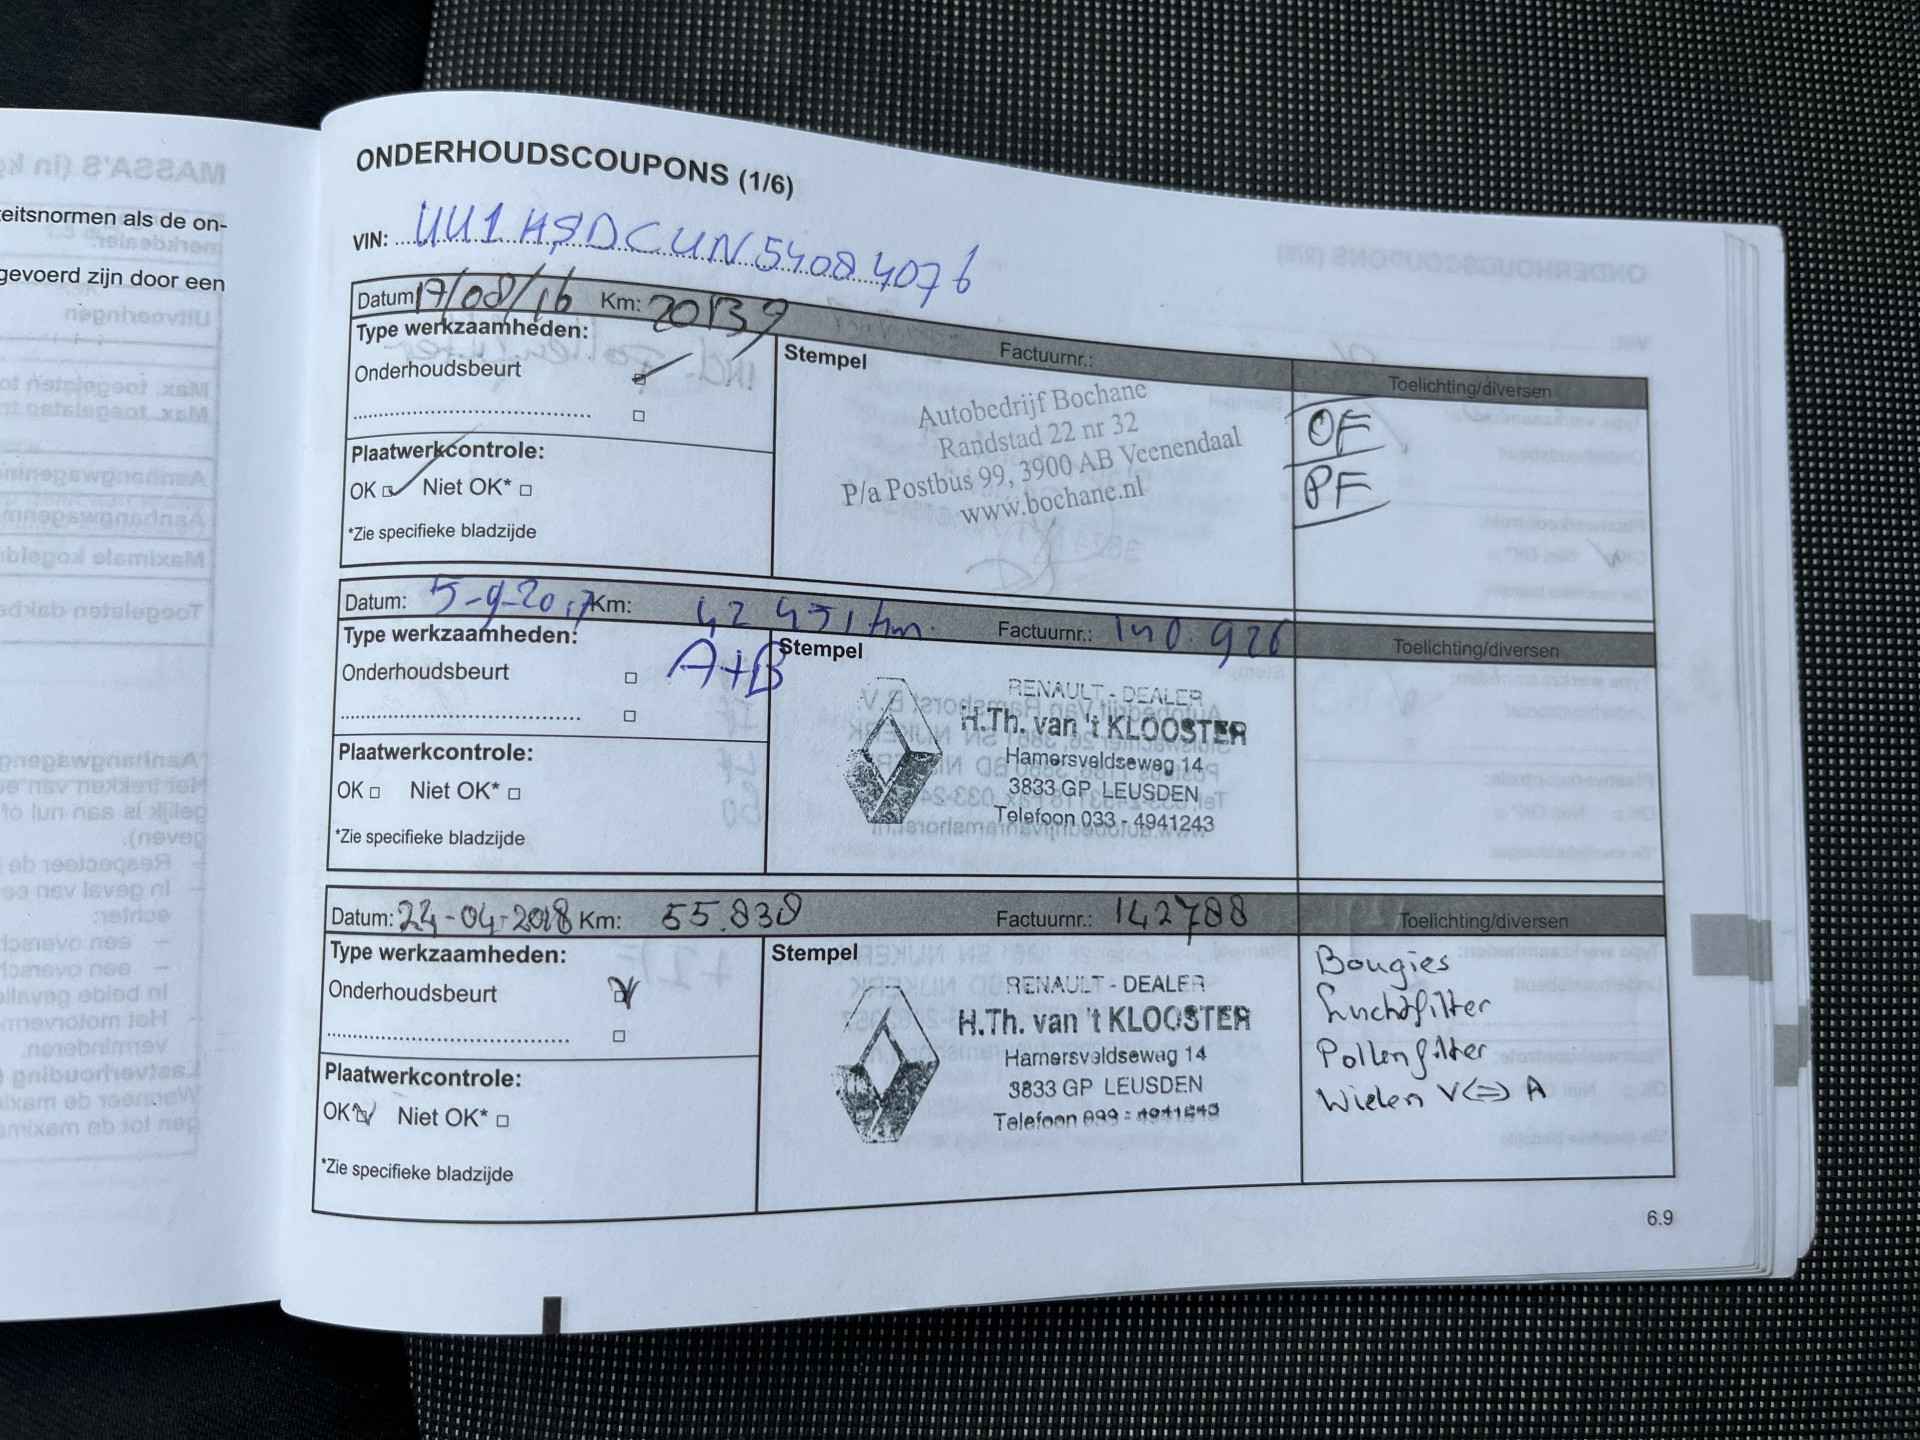 MASSA'S (in kg
eitsnormen als de on-
gevoerd zijn door een
ONDERHOUDSCOUPONS (1/6)
VIN: UU1HSDCUN54084076
Datum 17/08/16 Km: 20139
Type werkzaamheden:
Onderhoudsbeurt
Plaatwerkcontrole:
OK Niet OK*
*Zie specifieke bladzijde
Stempel
Factuurnr.:
Autobedrijf Bochane
Randstad 22 nr 32
P/a Postbus 99, 3900 AB Veenendaal
www.bochane.nl
Toelichting/diversen
OF
PF
Datum: 5-9-2017 Km: 42 451 km.
Factuurnr.: 140.926
Toelichting/diversen
Type werkzaamheden:
A+B
Onderhoudsbeurt
Plaatwerkcontrole:
OK Niet OK*
*Zie specifieke bladzijde
Stempel
RENAULT - DEALER
H.Th. van 't KLOOSTER
Hamersveldseweg 14
3833 GP LEUSDEN
Telefoon 033 - 4941243
Datum: 24-04-2018 Km: 55.838
Factuurnr.: 142788
Toelichting/diversen
Type werkzaamheden:
Onderhoudsbeurt
Plaatwerkcontrole:
OK Niet OK*
*Zie specifieke bladzijde
Stempel
RENAULT - DEALER
H.Th. van 't KLOOSTER
Hamersveldseweg 14
3833 GP LEUSDEN
Telefoon 033 - 4941243
Bougies
Luchtfilter
Pollenfilter
Wielen V<=> A
6.9